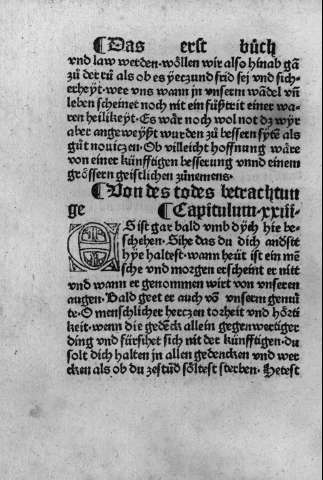 ¶Das erst bůch
vnd law werden. wöllen wir also hinab gā
zů der tü als ob es yetzund frid sej vnd sich-
erheyt. wee vns wann in vnserm wādel vn̄
leben scheinet noch nit ein fůßtrit einer wa-
ren heilikeyt. Es wār noch wol not dz wyr
aber angeweyßt wurden zů bessern syttē als
gůt nouiczen. Ob villeicht hoffnung wāre
von einer künfftigen besserung vnnd einem
grössern geistlichen zůnemens.
¶Von des todes betrachtun
ge ¶Capitulum. xxiii.
ES ist gar bald vmb dych hie be-
schehen. Sihe das du dich anderst
hye haltest. wann heüt ist ein mē
sche vnd morgen erscheint er nitt
vnd wann er genommen wirt von vnseren
augen. Bald geet er auch vō vnserm gemü
te. O menschlicher hertzen torheit vnd hörti
keit. wenn die gedēck allein gegenwertiger
ding vnd fürsihet sich nit der künfftigen. du
solt dich halten in allen gedencken vnd wer
cken als ob du zestūd söltest sterben. Hetest